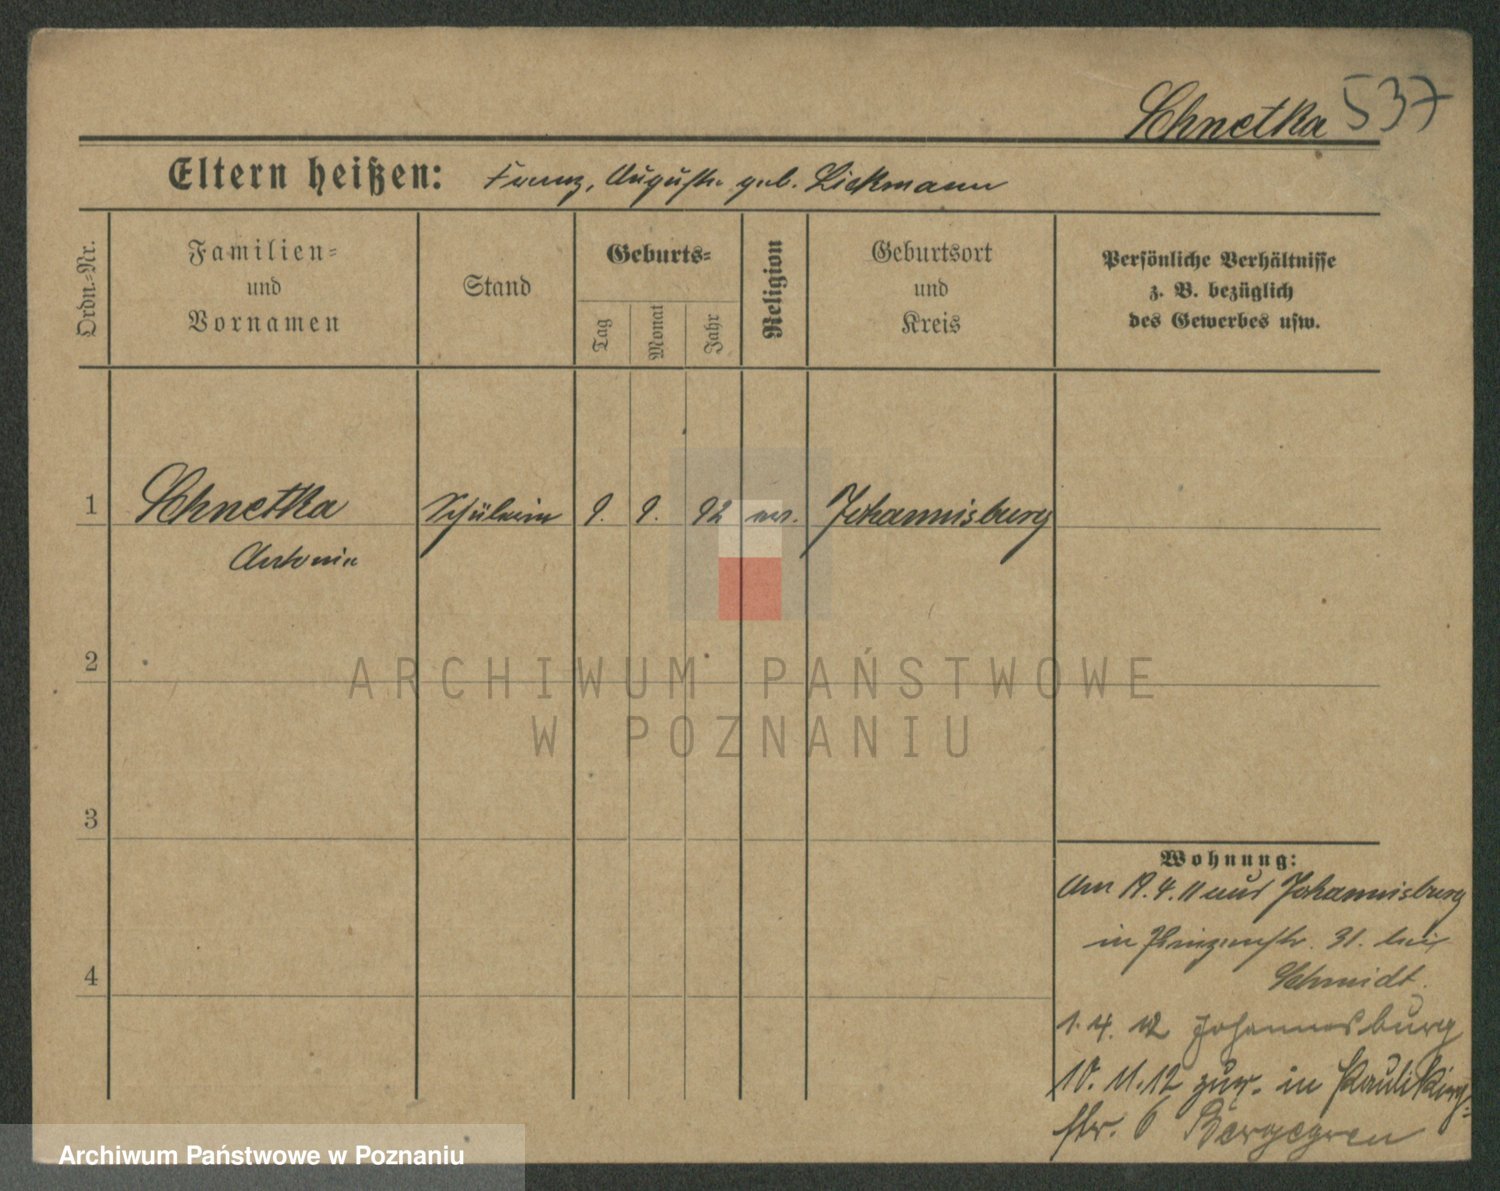 Schnetka 537
Eltern heißen: Franz, Auguste geb. Liekmann
Ordn.-Nr.
Familien-
und
Vornamen
Stand
Geburts-
Tag
Monat
Jahr
Religion
Geburtsort
und
Kreis
Persönliche Verhältnisse
z. B. bezüglich
des Gewerbes usw.
1 Schnetka Schülerin 9. 9. 92 ev. Johannisburg
Antonie
2
3
4
Wohnung:
Am 19.4.11 aus Johannisburg
in Prinzenstr. 31. bei
Schmidt.
1.4.12 Johannisburg
10.11.12 zur. in Paulikirch-
str. 6
ARCHIWUM PAŃSTWOWE
W POZNANIU
Archiwum Państwowe w Poznaniu